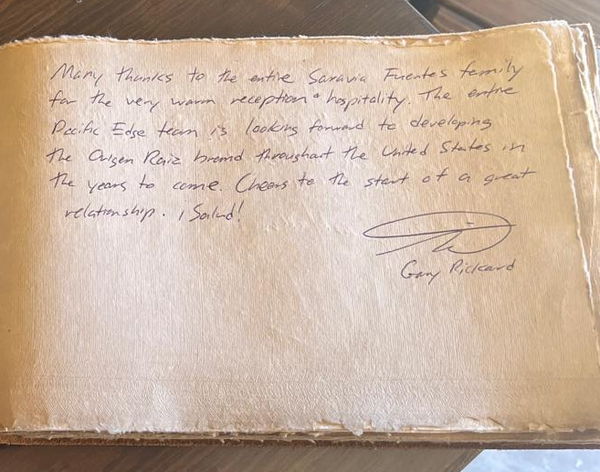 Many thanks to the entire Saravia Fuentes family
for the very warm reception + hospitality. The entire
Pacific Edge team is looking forward to developing
the Origen Raiz brand throughout the United States in
the years to come. Cheers to the start of a great
relationship. ¡Salud!
Gary Rickard